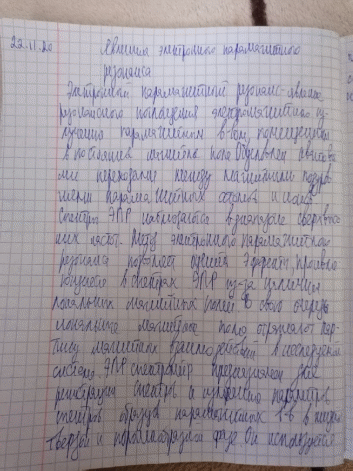 22.11.20 Явления электронного парамагнитного
резонанса
Электронный парамагнитный резонанс - явление
резонансного поглощения электромагнитного из-
лучения парамагнитным в-вом, помещенным
в постоянное магнитное поле
ми переходами между магнитными подуро-
внями парамагнитных атомов и ионов
спектры ЭПР наблюдаются в диапазоне сверхвысо-
ких частот. Метод электронного парамагнитного
резонанса позволяет эффекты, проявля
в спектрах ЭПР из-за
локальных магнитных полей В свою очередь
локальные магнитные поля отражают кар-
тину магнитных взаимодействий в исследуемой
системе. ЭПР спектрометр предназначен для
регистрации спектров и измерения параметров
спектров образца парамагнитных в-в в жидкой
твердой и парообразной фазе Он используется